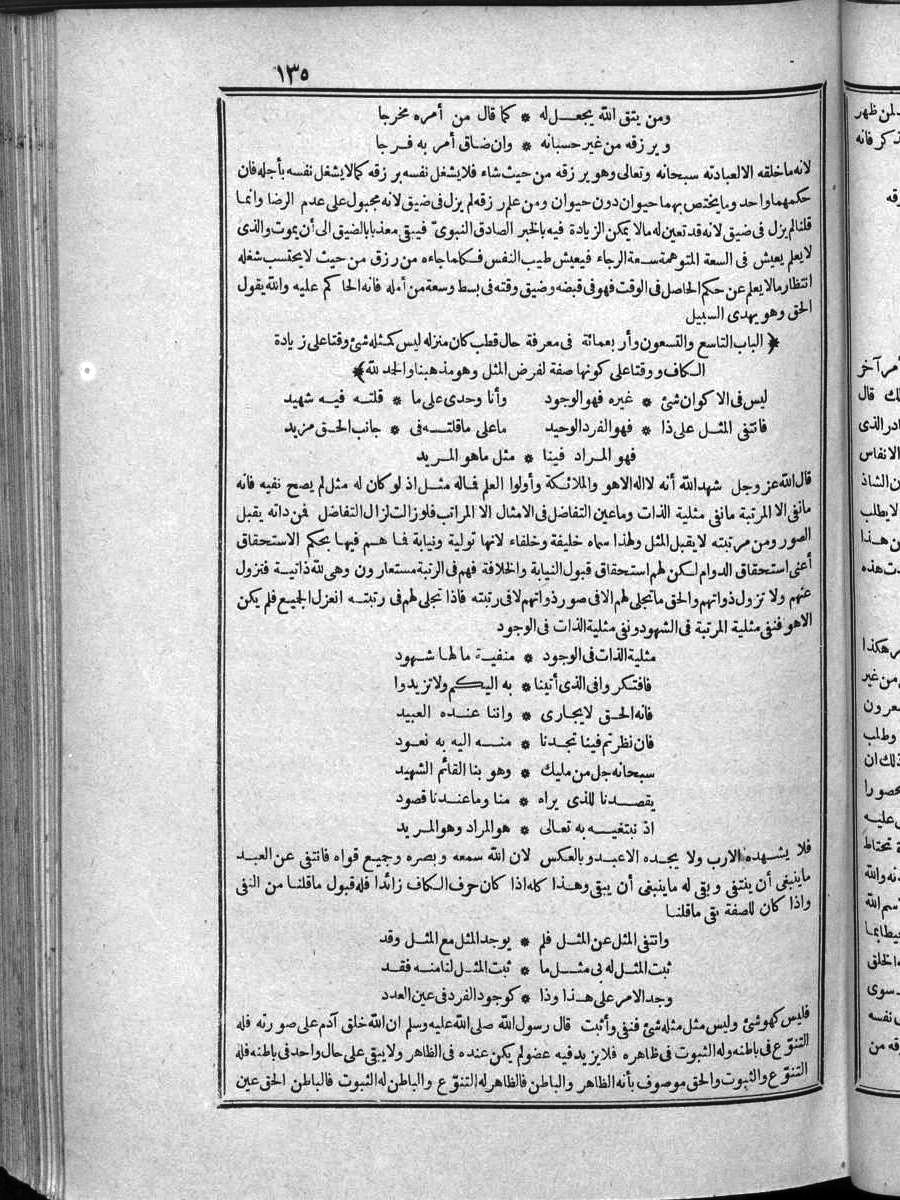 ١٣٥
ومن يتق الله يجعل له * كما قال من أمره مخرجا
ويرزقه من غير حسبانه * وان ضاق أمر به فرجا
لانه ما خلقه الا لعبادته سبحانه وتعالى وهو يرزقه من حيث شاء فلا يشغل نفسه برزقه كما لا يشغل نفسه بأجله فان
حكمهما واحد وما يختص بهما حيوان دون حيوان ومن علم رزقه لم يزل فى ضيق لانه مجبول على عدم الرضا وانما
قلنا لم يزل فى ضيق لانه قد تعين له مالا يمكن الزيادة فيه بالخبر الصادق النبوىّ فيبقى معذبا بالضيق الى أن يموت والذى
لا يعلم يعيش فى السعة المتوهمة سعة الرجاء فيعيش طيب النفس فكلما جاءه من رزق من حيث لا يحتسب شغله
انتظار مالا يعلم عن حكم الحاصل فى الوقت فهو فى قبضه وضيق وقته فى بسط وسعة من أمله فانه الحاكم عليه والله يقول
الحق وهو يهدى السبيل
﴿ الباب التاسع والتسعون وأربعمائة فى معرفة حال قطب كان منزله ليس كمثله شئ وقتا على زيادة
الكاف ووقتا على كونها صفة لفرض المثل وهو مذهبنا والحمد لله ﴾
ليس فى الاكوان شئ * غيره فهو الوجود وأنا وحدى على ما * قلته فيه شهيد
فانتفى المثل على ذا * فهو الفرد الوحيد ما على ما قلته فى * جانب الحق مزيد
فهو المراد فينا * مثل ما هو المريد
قال الله عز وجل شهد الله أنه لا اله الا هو والملائكة وأولوا العلم فماله مثل اذ لو كان له مثل لم يصح نفيه فانه
مانفى الا المرتبة مانفى مثلية الذات وما عين التفاضل فى الامثال الا المراتب فلو زالت لزال التفاضل فمن ذاته يقبل
الصور ومن مرتبته لا يقبل المثل ولهذا سماه خليفة وخلفاء لانها تولية ونيابة فما هم فيها بحكم الاستحقاق
أعنى استحقاق الدوام لكن لهم استحقاق قبول النيابة والخلافة فهم فى الرتبة مستعارون وهى لله ذاتية فتزول
عنهم ولا تزول ذواتهم والحق ما تجلى لهم الا فى صور ذواتهم لا فى رتبته فاذا تجلى لهم فى رتبته انعزل الجميع فلم يكن
الا هو فنفى مثلية المرتبة فى الشهود ونفى مثلية الذات فى الوجود
مثلية الذات فى الوجود * منفية ما لها شهود
فافتكروا فى الذى أتينا * به اليكم ولا تزيدوا
فانه الحق لا يجارى * واننا عنده العبيد
فان نظرتم فينا تجدنا * منه اليه به نعود
سبحانه جل من مليك * وهو بنا القائم الشهيد
يقصدنا للذى يراه * منا وما عندنا قصود
اذ نبتغيه به تعالى * هو المراد وهو المريد
فلا يشهده الا رب ولا يجده الا عبد وبالعكس لان الله سمعه وبصره وجميع قواه فانتفى عن العبد
ما ينبغى أن ينتفى وبقى له ما ينبغى أن يبقى وهذا كله اذا كان حرف الكاف زائدا فله قبول ما قلنا من النفى
واذا كان للصفة بقى ما قلنا
وانتفى المثل عن المثل فلم * يوجد المثل مع المثل وقد
ثبت المثل له بى مثل ما * ثبت المثل لنا منه فقد
وجد الامر على هذا وذا * كوجود الفرد فى عين العدد
فليس كهو شئ وليس مثل مثله شئ فنفى وأثبت قال رسول الله صلى الله عليه وسلم ان الله خلق آدم على صورته فله
التنوّع فى باطنه وله الثبوت فى ظاهره فلا يزيد فيه عضو لم يكن عنده فى الظاهر ولا يبقى على حال واحد فى باطنه فله
التنوّع والثبوت والحق موصوف بأنه الظاهر والباطن فالظاهر له التنوّع والباطن له الثبوت فالباطن الحق عين